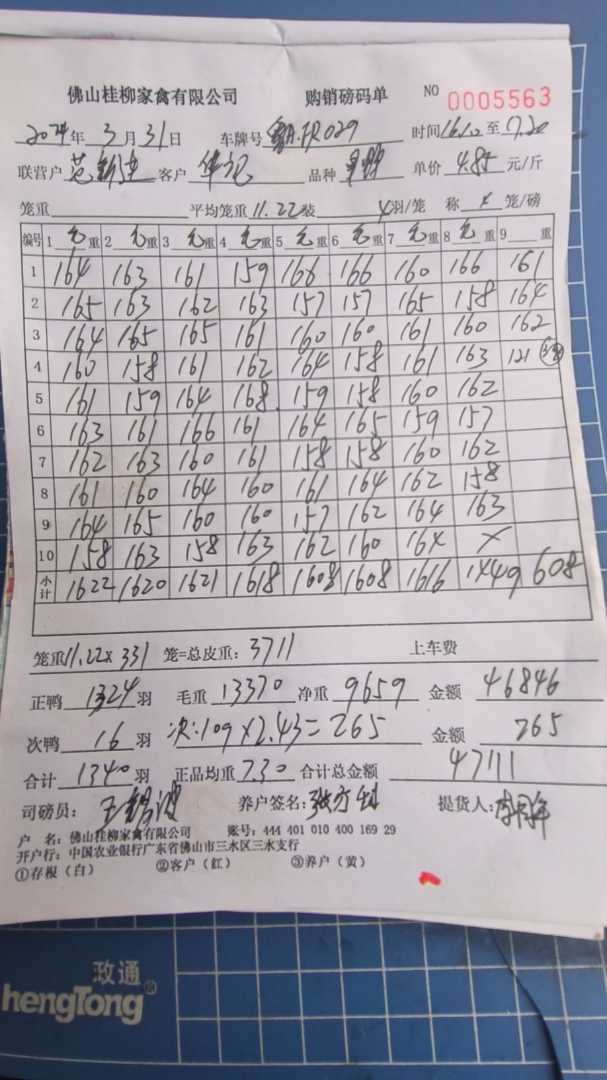 佛山桂柳家禽有限公司 购销磅码单 NO 0005563
2024年 3月 31日 车牌号 029 时间 至 7.20
联营户 客户 华记 品种 单价 4.85 元/斤
笼重 平均笼重 11.22 装 4羽/笼 称 4 笼/磅
编号 1 毛重 2 毛重 3 毛重 4 毛重 5 毛重 6 毛重 7 毛重 8 毛重 9 重
1 164 163 161 159 166 166 160 166 161
2 165 163 162 163 157 157 165 158 164
3 164 165 165 161 160 160 161 160 162
4 160 158 161 162 164 158 161 163 121
5 161 159 164 168 159 158 160 162
6 163 161 166 161 164 165 159 157
7 162 163 160 161 158 158 160 162
8 161 160 164 160 161 164 162 158
9 164 165 160 160 157 162 164 163
10 158 163 158 163 162 160 164 ×
小计 1622 1620 1621 1618 1608 1608 1616 1449 608
笼重11.22×331 笼=总皮重:3711 上车费
正鸭 1324 羽 毛重 13370 净重 9659 金额 46846
次鸭 16 羽 次:109×2.43=265 金额 265
合计 1340 羽 正品均重 7.30 合计总金额 47111
司磅员: 养户签名: 提货人:
户 名:佛山桂柳家禽有限公司 账号:444 401 010 400 169 29
开户行:中国农业银行广东省佛山市三水区三水支行
①存根(白) ②客户(红) ③养户(黄)
政通®
hengTong